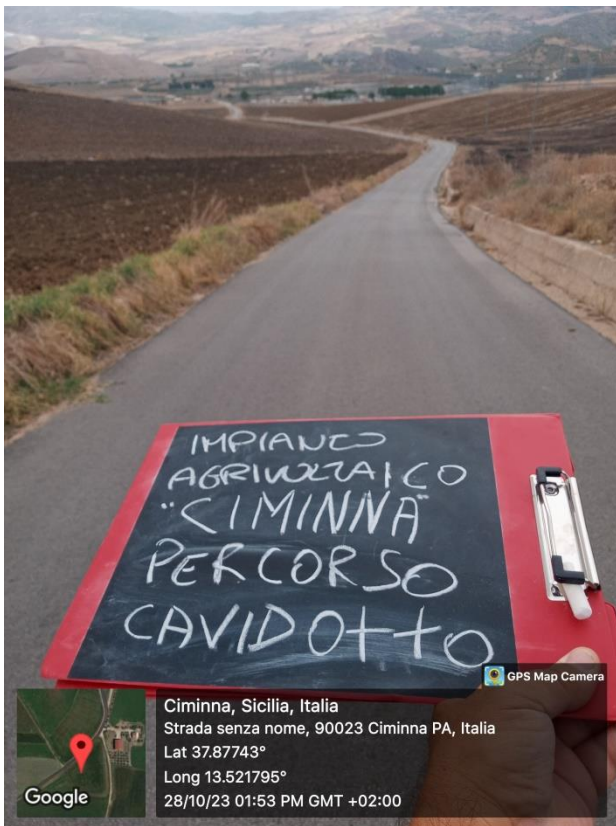 IMPIANTO
AGRIVOLTAICO
"CIMINNA"
PERCORSO
CAVIDOTTO
GPS Map Camera
Google
Ciminna, Sicilia, Italia
Strada senza nome, 90023 Ciminna PA, Italia
Lat 37.87743°
Long 13.521795°
28/10/23 01:53 PM GMT +02:00